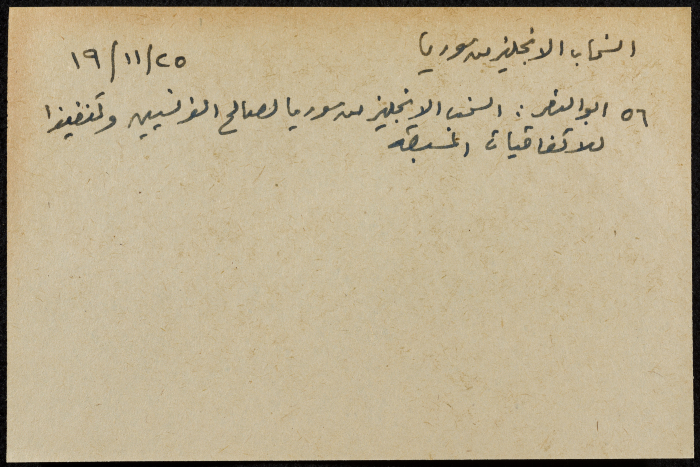 انسحاب الانجليز من سوريا
١٩/١١/٢٥
٥٦ ابو النصر : انسحب الانجليز من سوريا لصالح الفرنسيين وتنفيذا
للاتفاقيات المسبقه